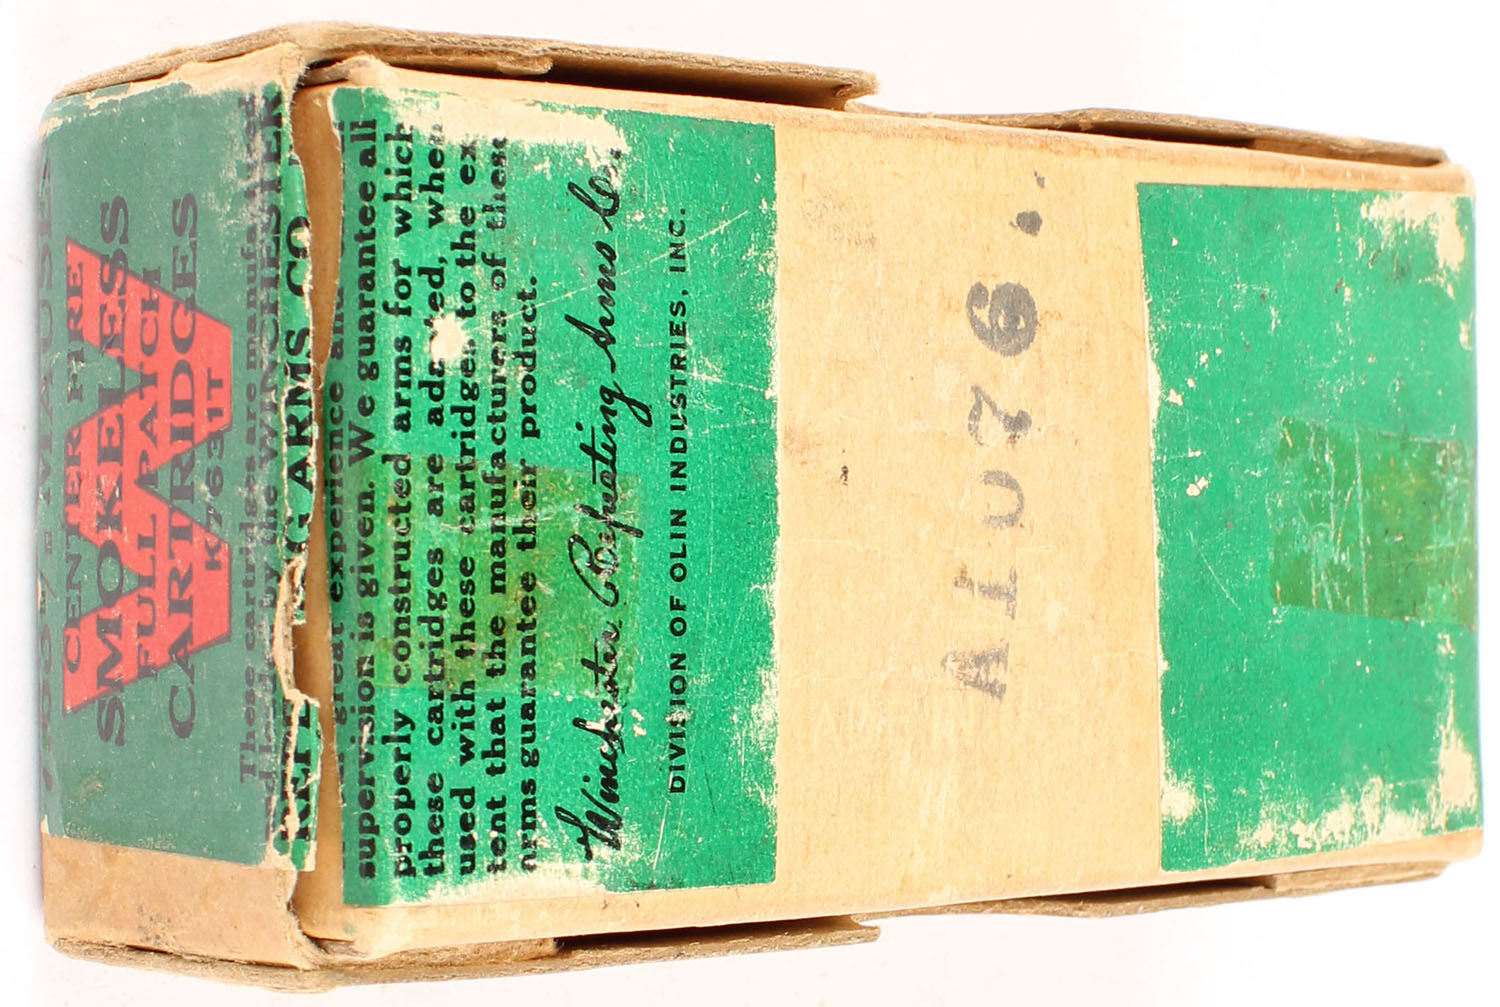 7.65 % MAUSER
CENTER FIRE
SMOKELESS
FULL PATCH
CARTRIDGES
K7631T
These cartridges are manufactured
by the WINCHESTER
ARMS CO.
great experience and
supervision is given. We guarantee all
properly constructed arms for which
these cartridges are adapted, when
used with these cartridges to the ex-
tent that the manufacturers of these
arms guarantee their product.
Winchester Repeating Arms Co.
DIVISION OF OLIN INDUSTRIES, INC.